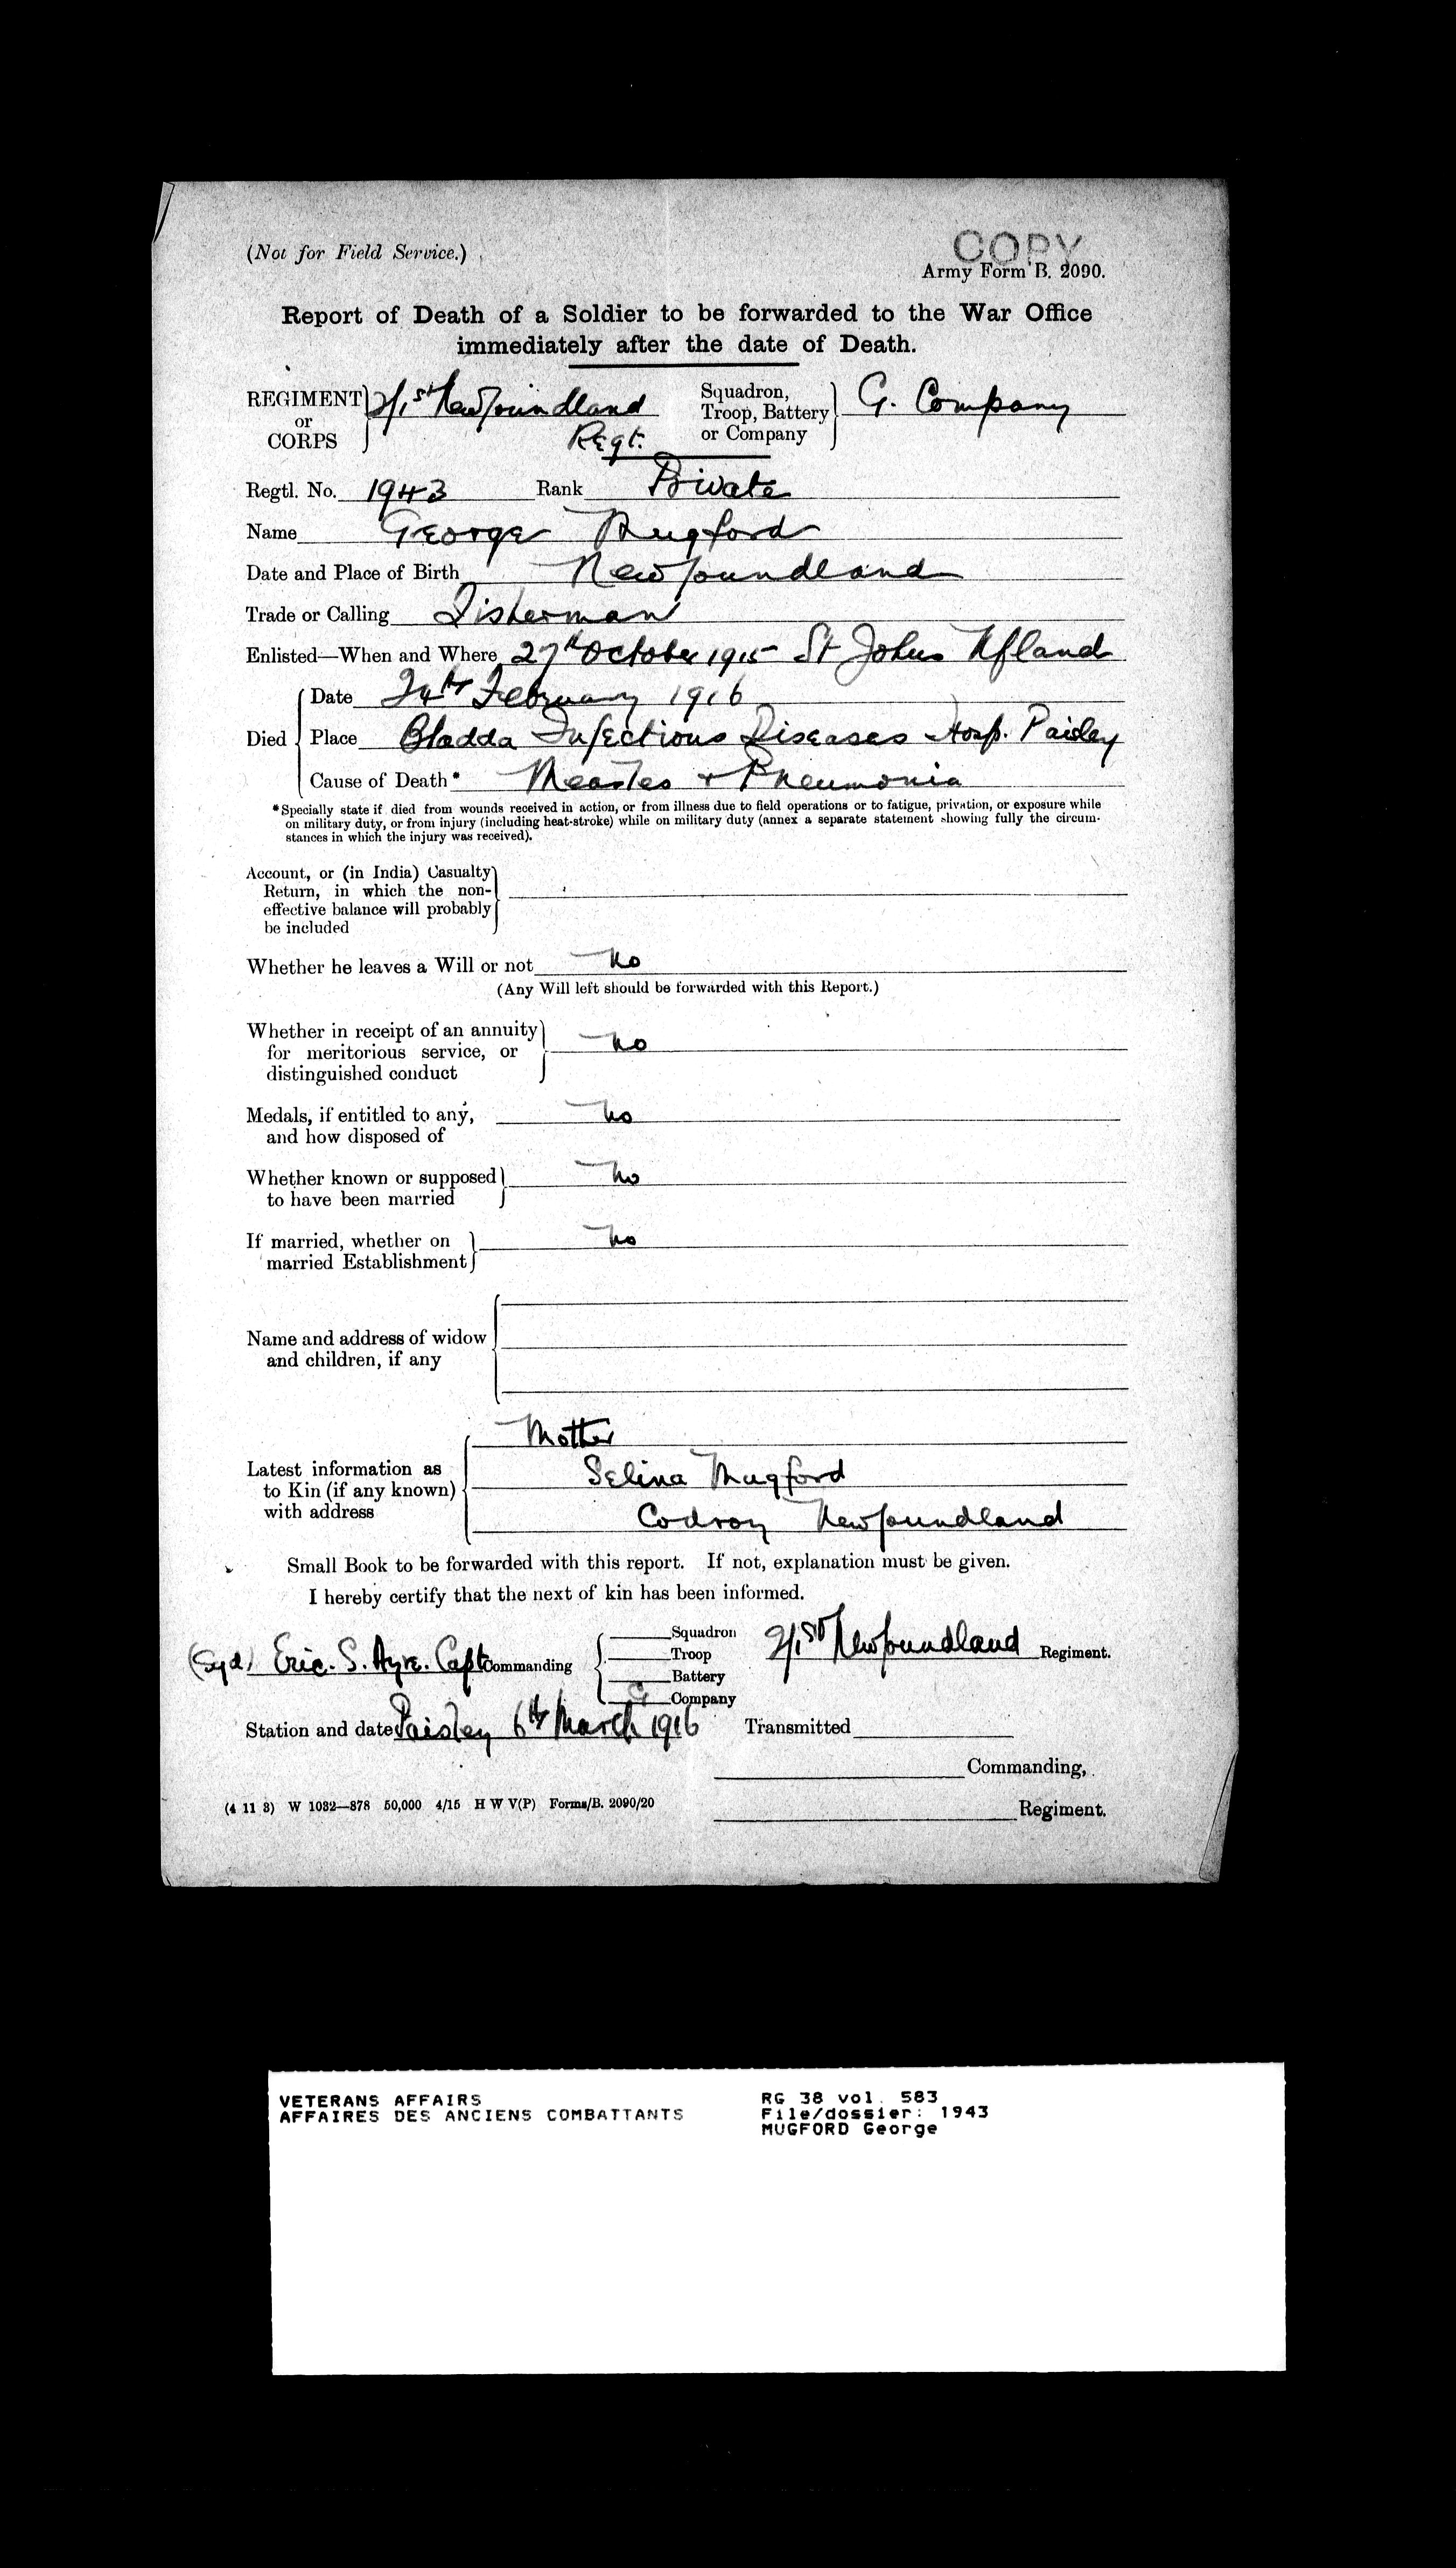 (Not for Field Service.)
COPY
Army Form B. 2090.
Report of Death of a Soldier to be forwarded to the War Office
immediately after the date of Death.
REGIMENT or CORPS 2/1st Newfoundland Regt. Squadron, Troop, Battery or Company G. Company
Regtl. No. 1943 Rank Private
Name George Mugford
Date and Place of Birth Newfoundland
Trade or Calling Fisherman
Enlisted—When and Where 27th October 1915 St Johns Nfland
Died Date 24th February 1916
Place Bladda Infectious Diseases Hosp. Paisley
Cause of Death* Measles + Pneumonia
*Specially state if died from wounds received in action, or from illness due to field operations or to fatigue, privation, or exposure while
on military duty, or from injury (including heat-stroke) while on military duty (annex a separate statement showing fully the circum-
stances in which the injury was received).
Account, or (in India) Casualty
Return, in which the non-
effective balance will probably
be included
Whether he leaves a Will or not No
(Any Will left should be forwarded with this Report.)
Whether in receipt of an annuity
for meritorious service, or No
distinguished conduct
Medals, if entitled to any, No
and how disposed of
Whether known or supposed No
to have been married
If married, whether on No
married Establishment
Name and address of widow
and children, if any
Mother
Latest information as Selina Mugford
to Kin (if any known)
with address Codroy Newfoundland
Small Book to be forwarded with this report. If not, explanation must be given.
I hereby certify that the next of kin has been informed.
Squadron
(Sgd) Eric. S. Ayre. Capt Commanding Troop 2/1st Newfoundland Regiment.
Battery
G Company
Station and date Paisley 6th March 1916 Transmitted
Commanding,
(4 11 3) W 1032—878 50,000 4/15 H W V(P) Forms/B. 2090/20
Regiment.
VETERANS AFFAIRS RG 38 vol. 583
AFFAIRES DES ANCIENS COMBATTANTS File/dossier: 1943
MUGFORD George